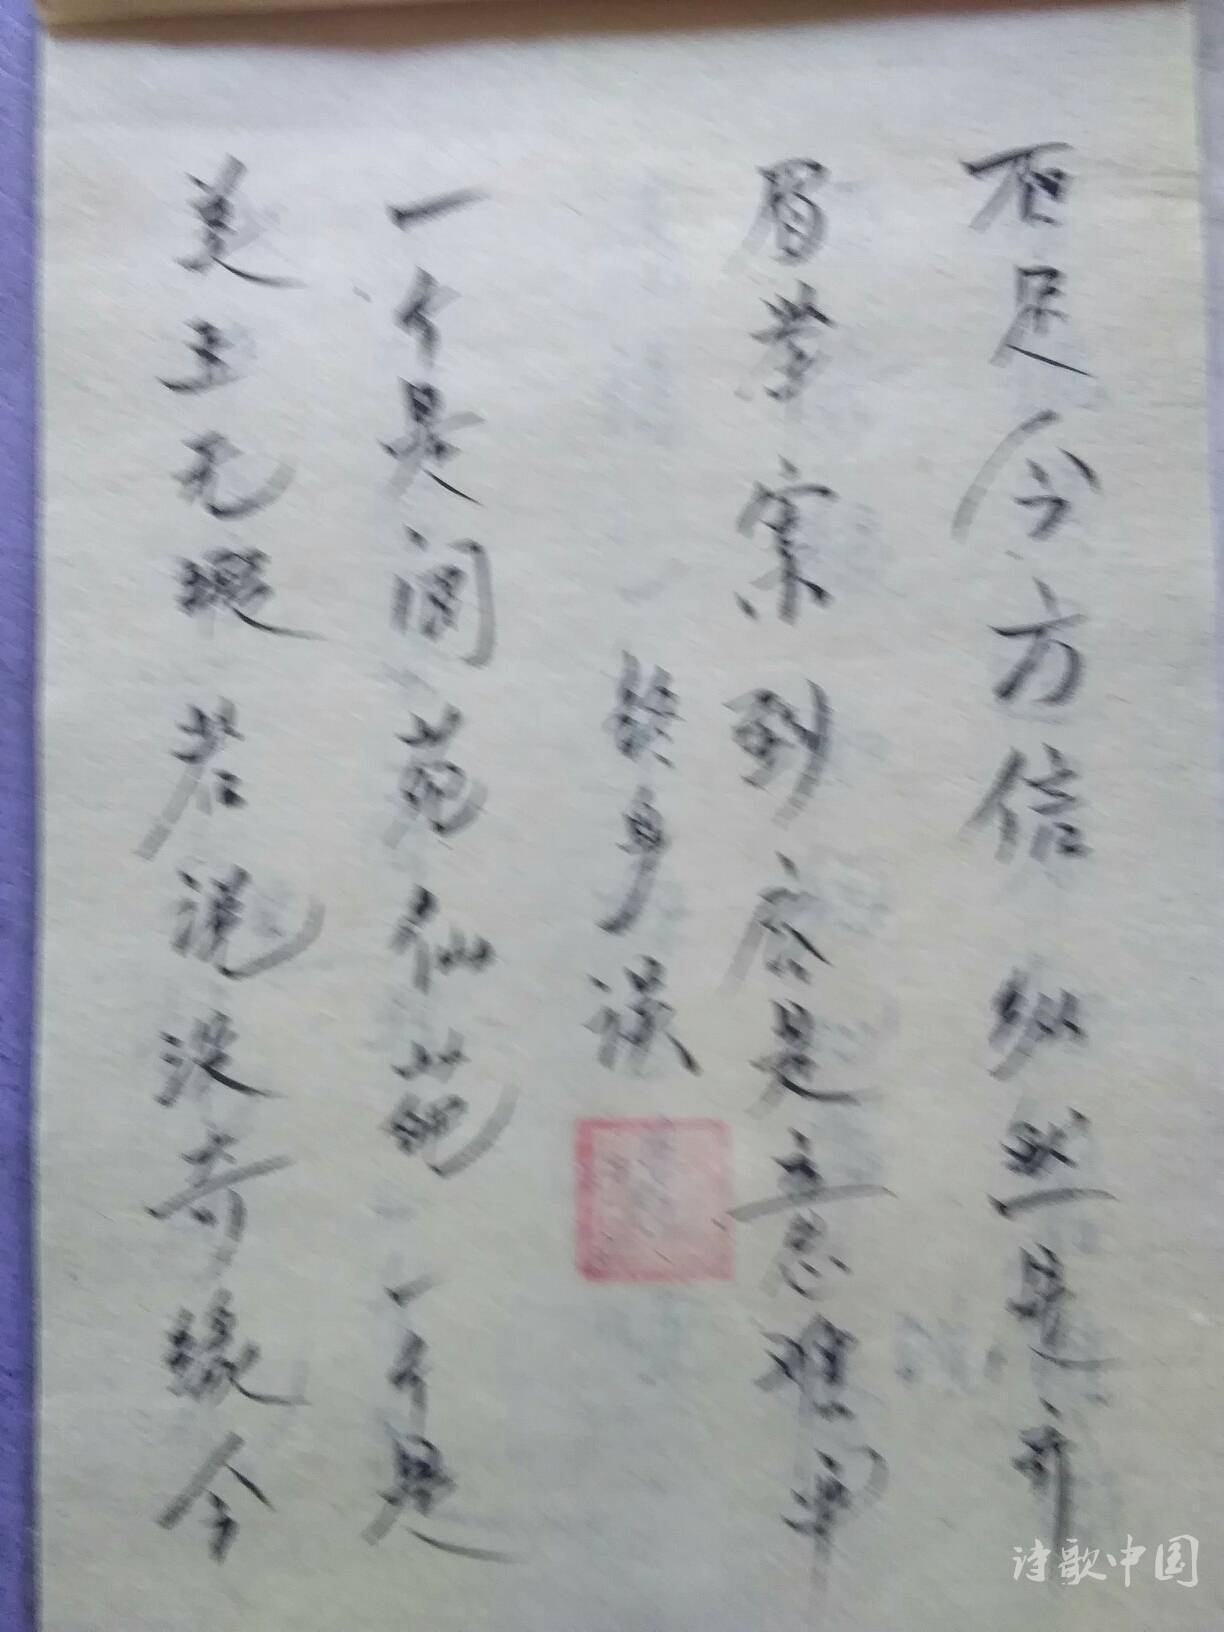 不足今方信纵然是齐
眉举案到底是意难平
枉凝眉
一个是阆苑仙葩一个是
美玉无瑕若说没奇缘今
诗歌中国